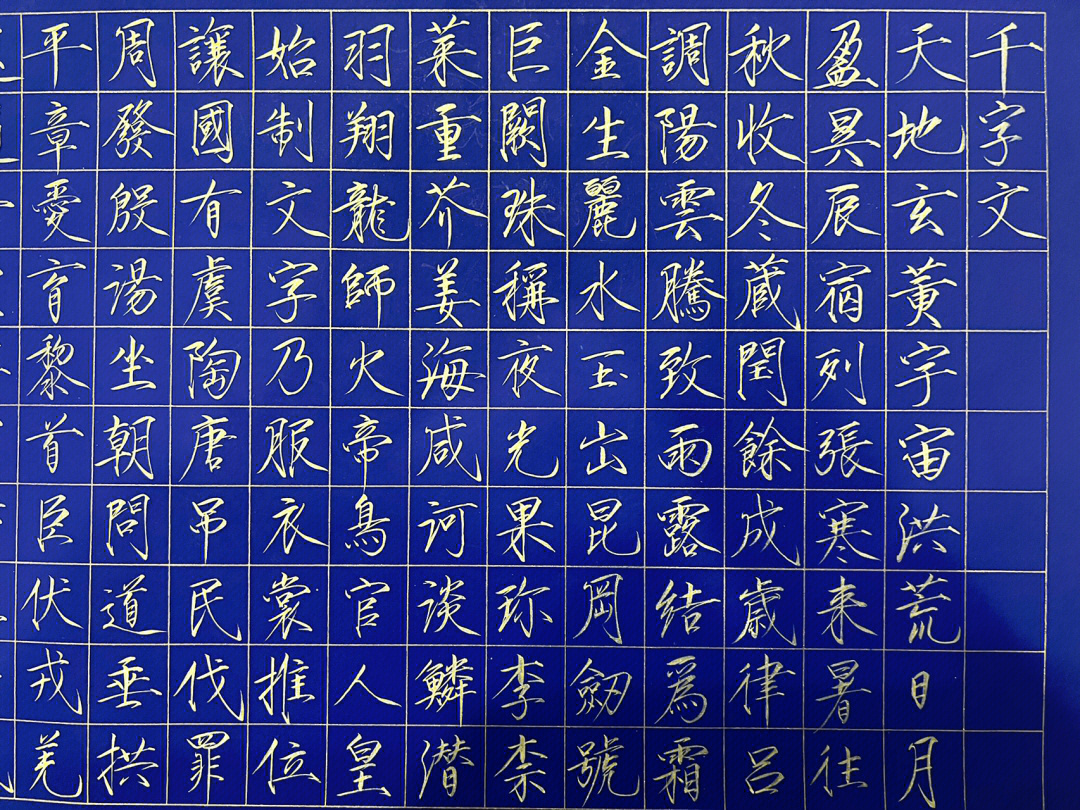 千字文
天地玄黃宇宙洪荒日月
盈昃辰宿列張寒来暑往
秋收冬蔵閏餘成歲律呂
調陽雲騰致雨露結爲霜
金生麗水玉出昆岡劒號
巨闕珠稱夜光果珎李柰
菜重芥姜海咸河淡鱗潜
羽翔龍師火帝鳥官人皇
始制文字乃服衣裳推位
讓國有虞陶唐吊民伐罪
周發殷湯坐朝問道垂拱
平章愛育黎首臣伏戎羌